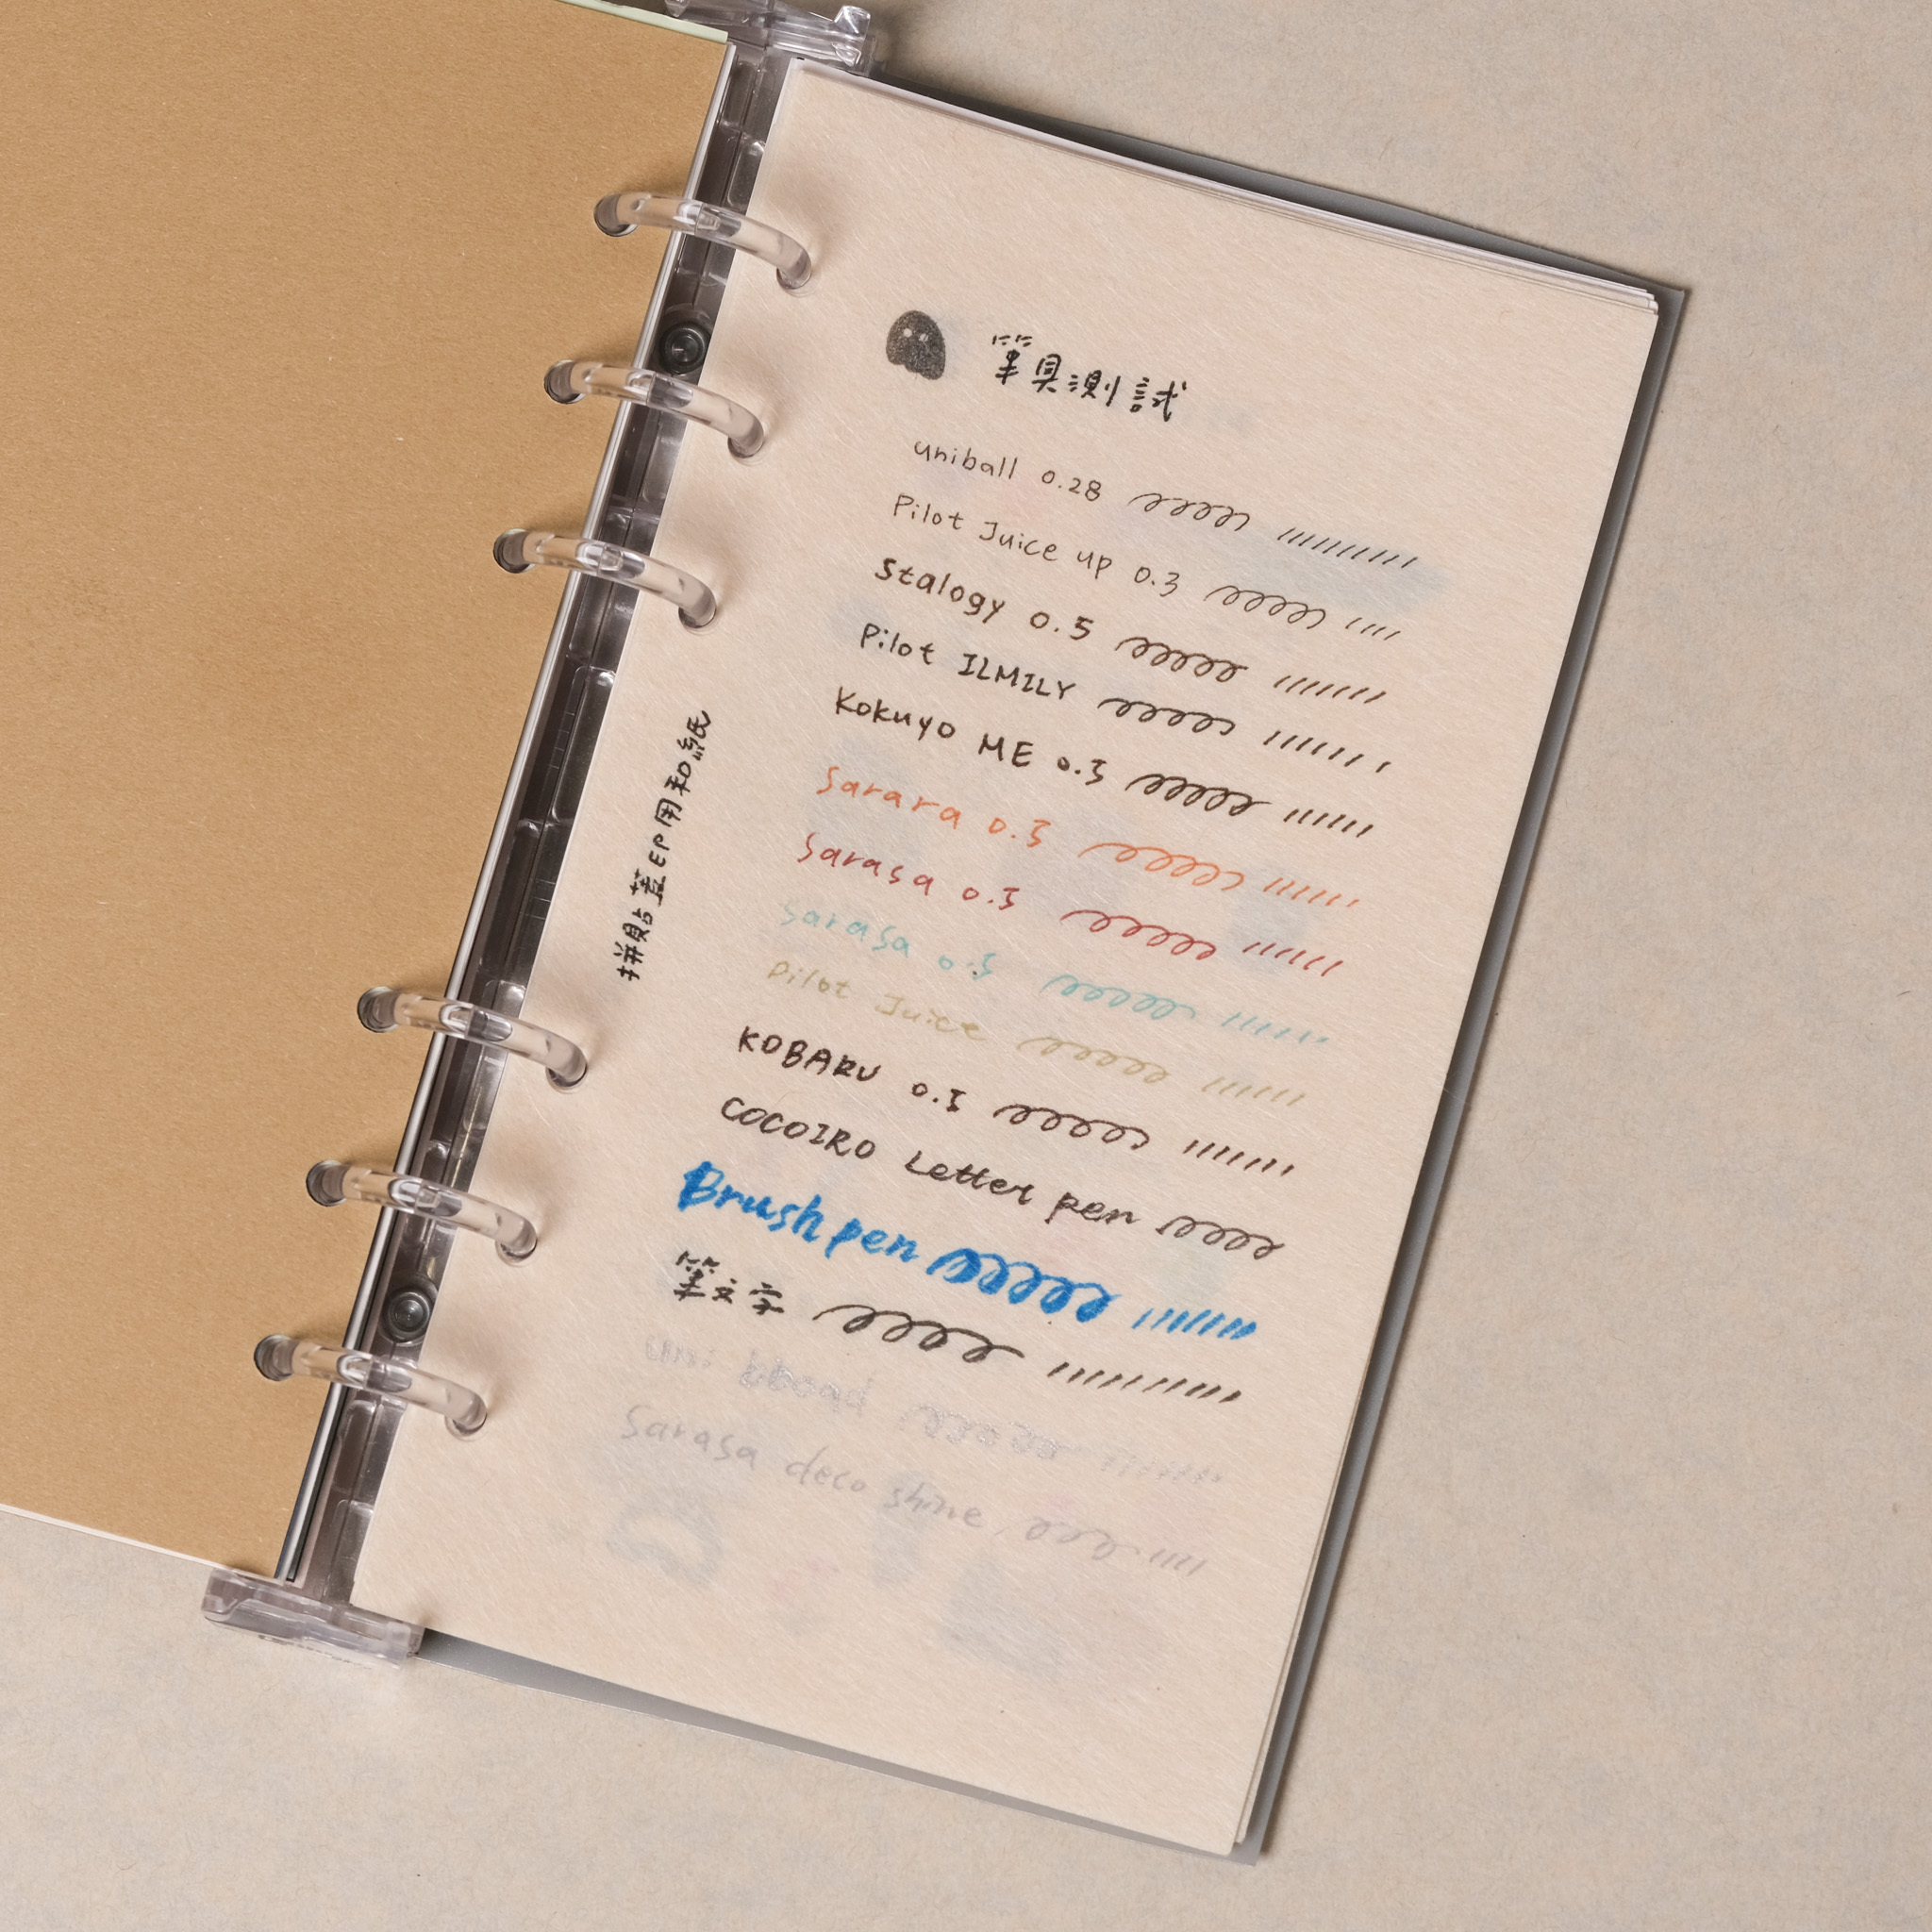 筆具測試
uniball 0.28
Pilot Juice up 0.3
Stalogy 0.5
Pilot ILMILY
Kokuyo ME 0.5
Sarara 0.5
Sarasa 0.5
Sarasa 0.5
Pilot Juice
KOBARU 0.5
COCOIRO Letter pen
Brush pen
筆文字
uni
Sarasa deco shine
拼貼蓋印用和紙